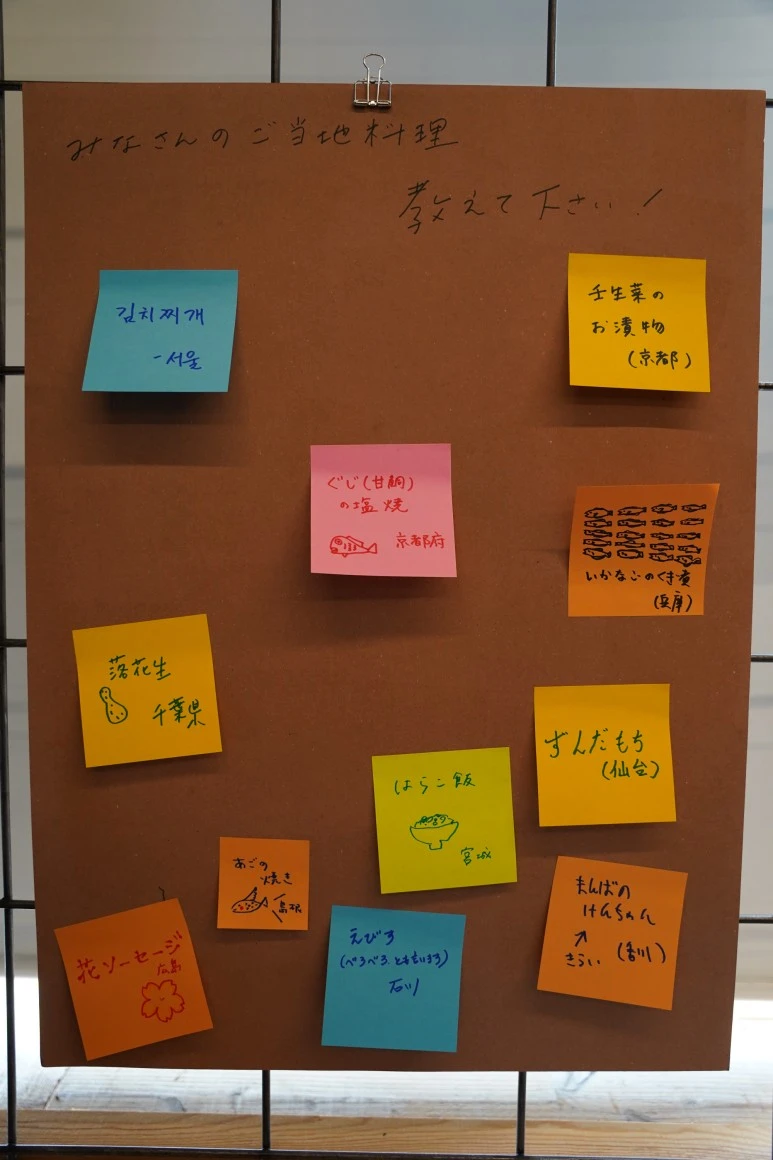 みなさんのご当地料理
教えて下さい!
김치찌개
-서울
壬生菜の
お漬物
(京都)
ぐじ(甘鯛)
の塩焼
京都府
いかなごのくぎ煮
(兵庫)
落花生
千葉県
ずんだもち
(仙台)
はらこ飯
宮城
あごの
焼き
島根
まんばの
けんちゃん
↑
きらい (香川)
花ソーセージ
広島
えびす
(べろべろ とも言います)
石川